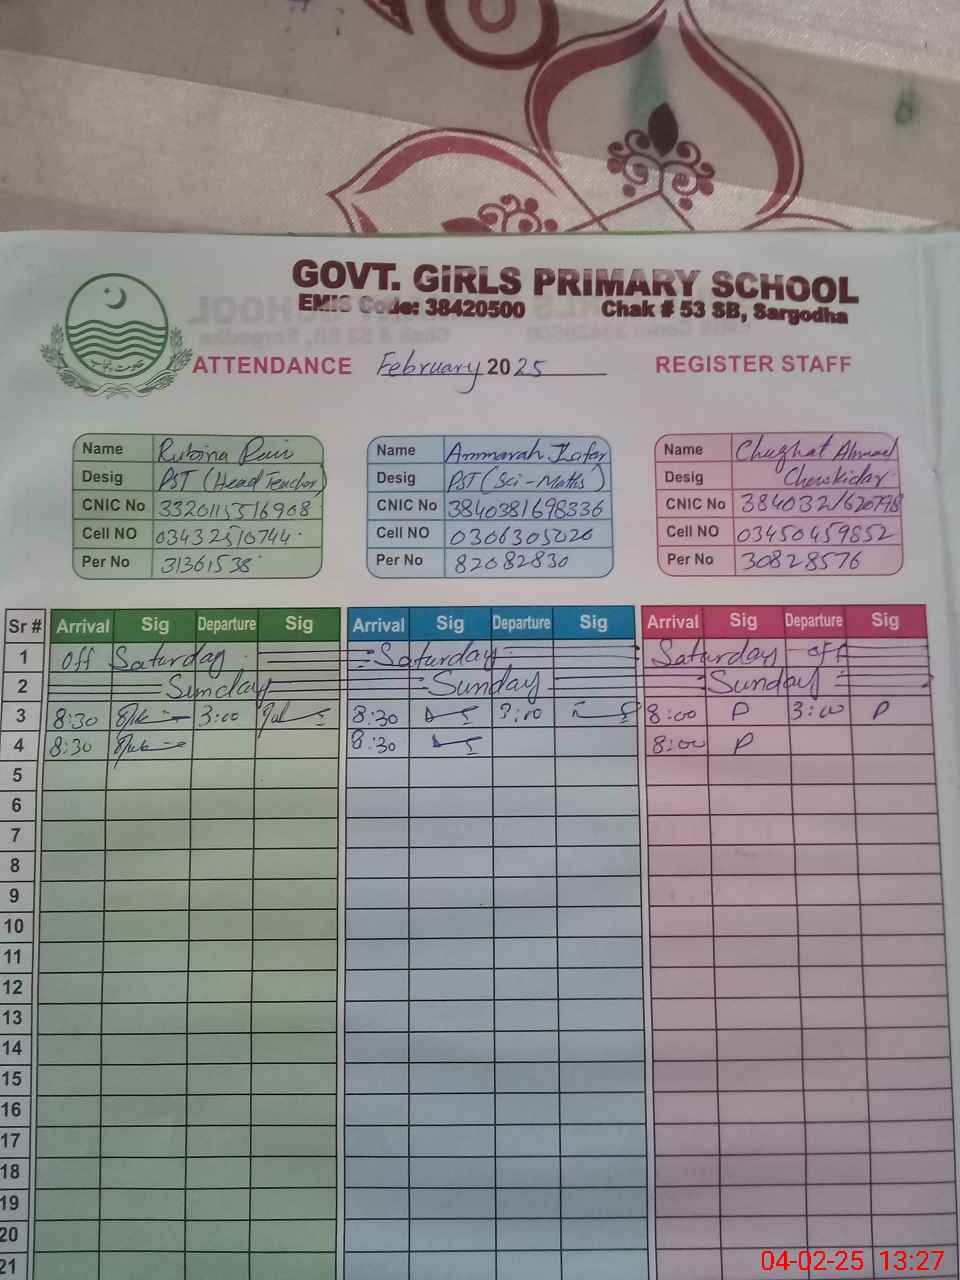 GOVT. GIRLS PRIMARY SCHOOL
EMIS Code: 38420500 Chak # 53 SB, Sargodha
حکومت پنجاب
ATTENDANCE February 2025 REGISTER STAFF
Name Rubina
Desig PST (Head Teacher)
CNIC No
Cell NO 03432510744
Per No 31361538
Name Ammarah Zafar
Desig PST (Sci-Maths)
CNIC No 3840381698336
Cell NO
Per No 82082830
Name Chughat Ahmad
Desig Chowkidar
CNIC No
Cell NO 03450459852
Per No 30828576
Sr # Arrival Sig Departure Sig Arrival Sig Departure Sig Arrival Sig Departure Sig
1 off Saturday Saturday Saturday off
2 Sunday Sunday Sunday
3 8:30 3:00 8:30 3:00 8:00 P 3:00 P
4 8:30 8:30 8:00 P
5
6
7
8
9
10
11
12
13
14
15
16
17
18
19
20
21
04-02-25 13:27